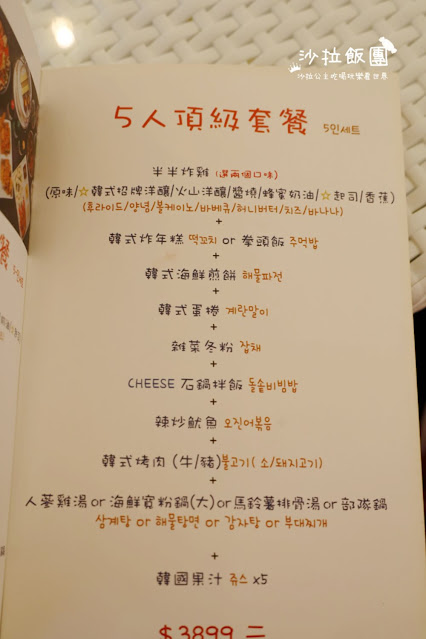 沙拉飯團
沙拉公主吃喝玩樂看世界
5人頂級套餐 5인세트
半半炸雞 (選兩個口味)
(原味/☆韓式招牌洋釀/火山洋釀/醬燒/蜂蜜奶油/☆起司/香蕉)
(후라이드/양념/볼케이노/바베큐/허니버터/치즈/바나나)
+
韓式炸年糕 떡꼬치 or 拳頭飯 주먹밥
+
韓式海鮮煎餅 해물파전
+
韓式蛋捲 계란말이
+
雜菜冬粉 잡채
+
CHEESE 石鍋拌飯 돌솥비빔밥
+
辣炒魷魚 오징어볶음
+
韓式烤肉 (牛/豬)불고기( 소/돼지고기)
+
人蔘雞湯or海鮮寬粉鍋(大)or馬鈴薯排骨湯or部隊鍋
삼계탕 or 해물탕면 or 감자탕 or 부대찌개
+
韓國果汁 쥬스 x5
$3899元